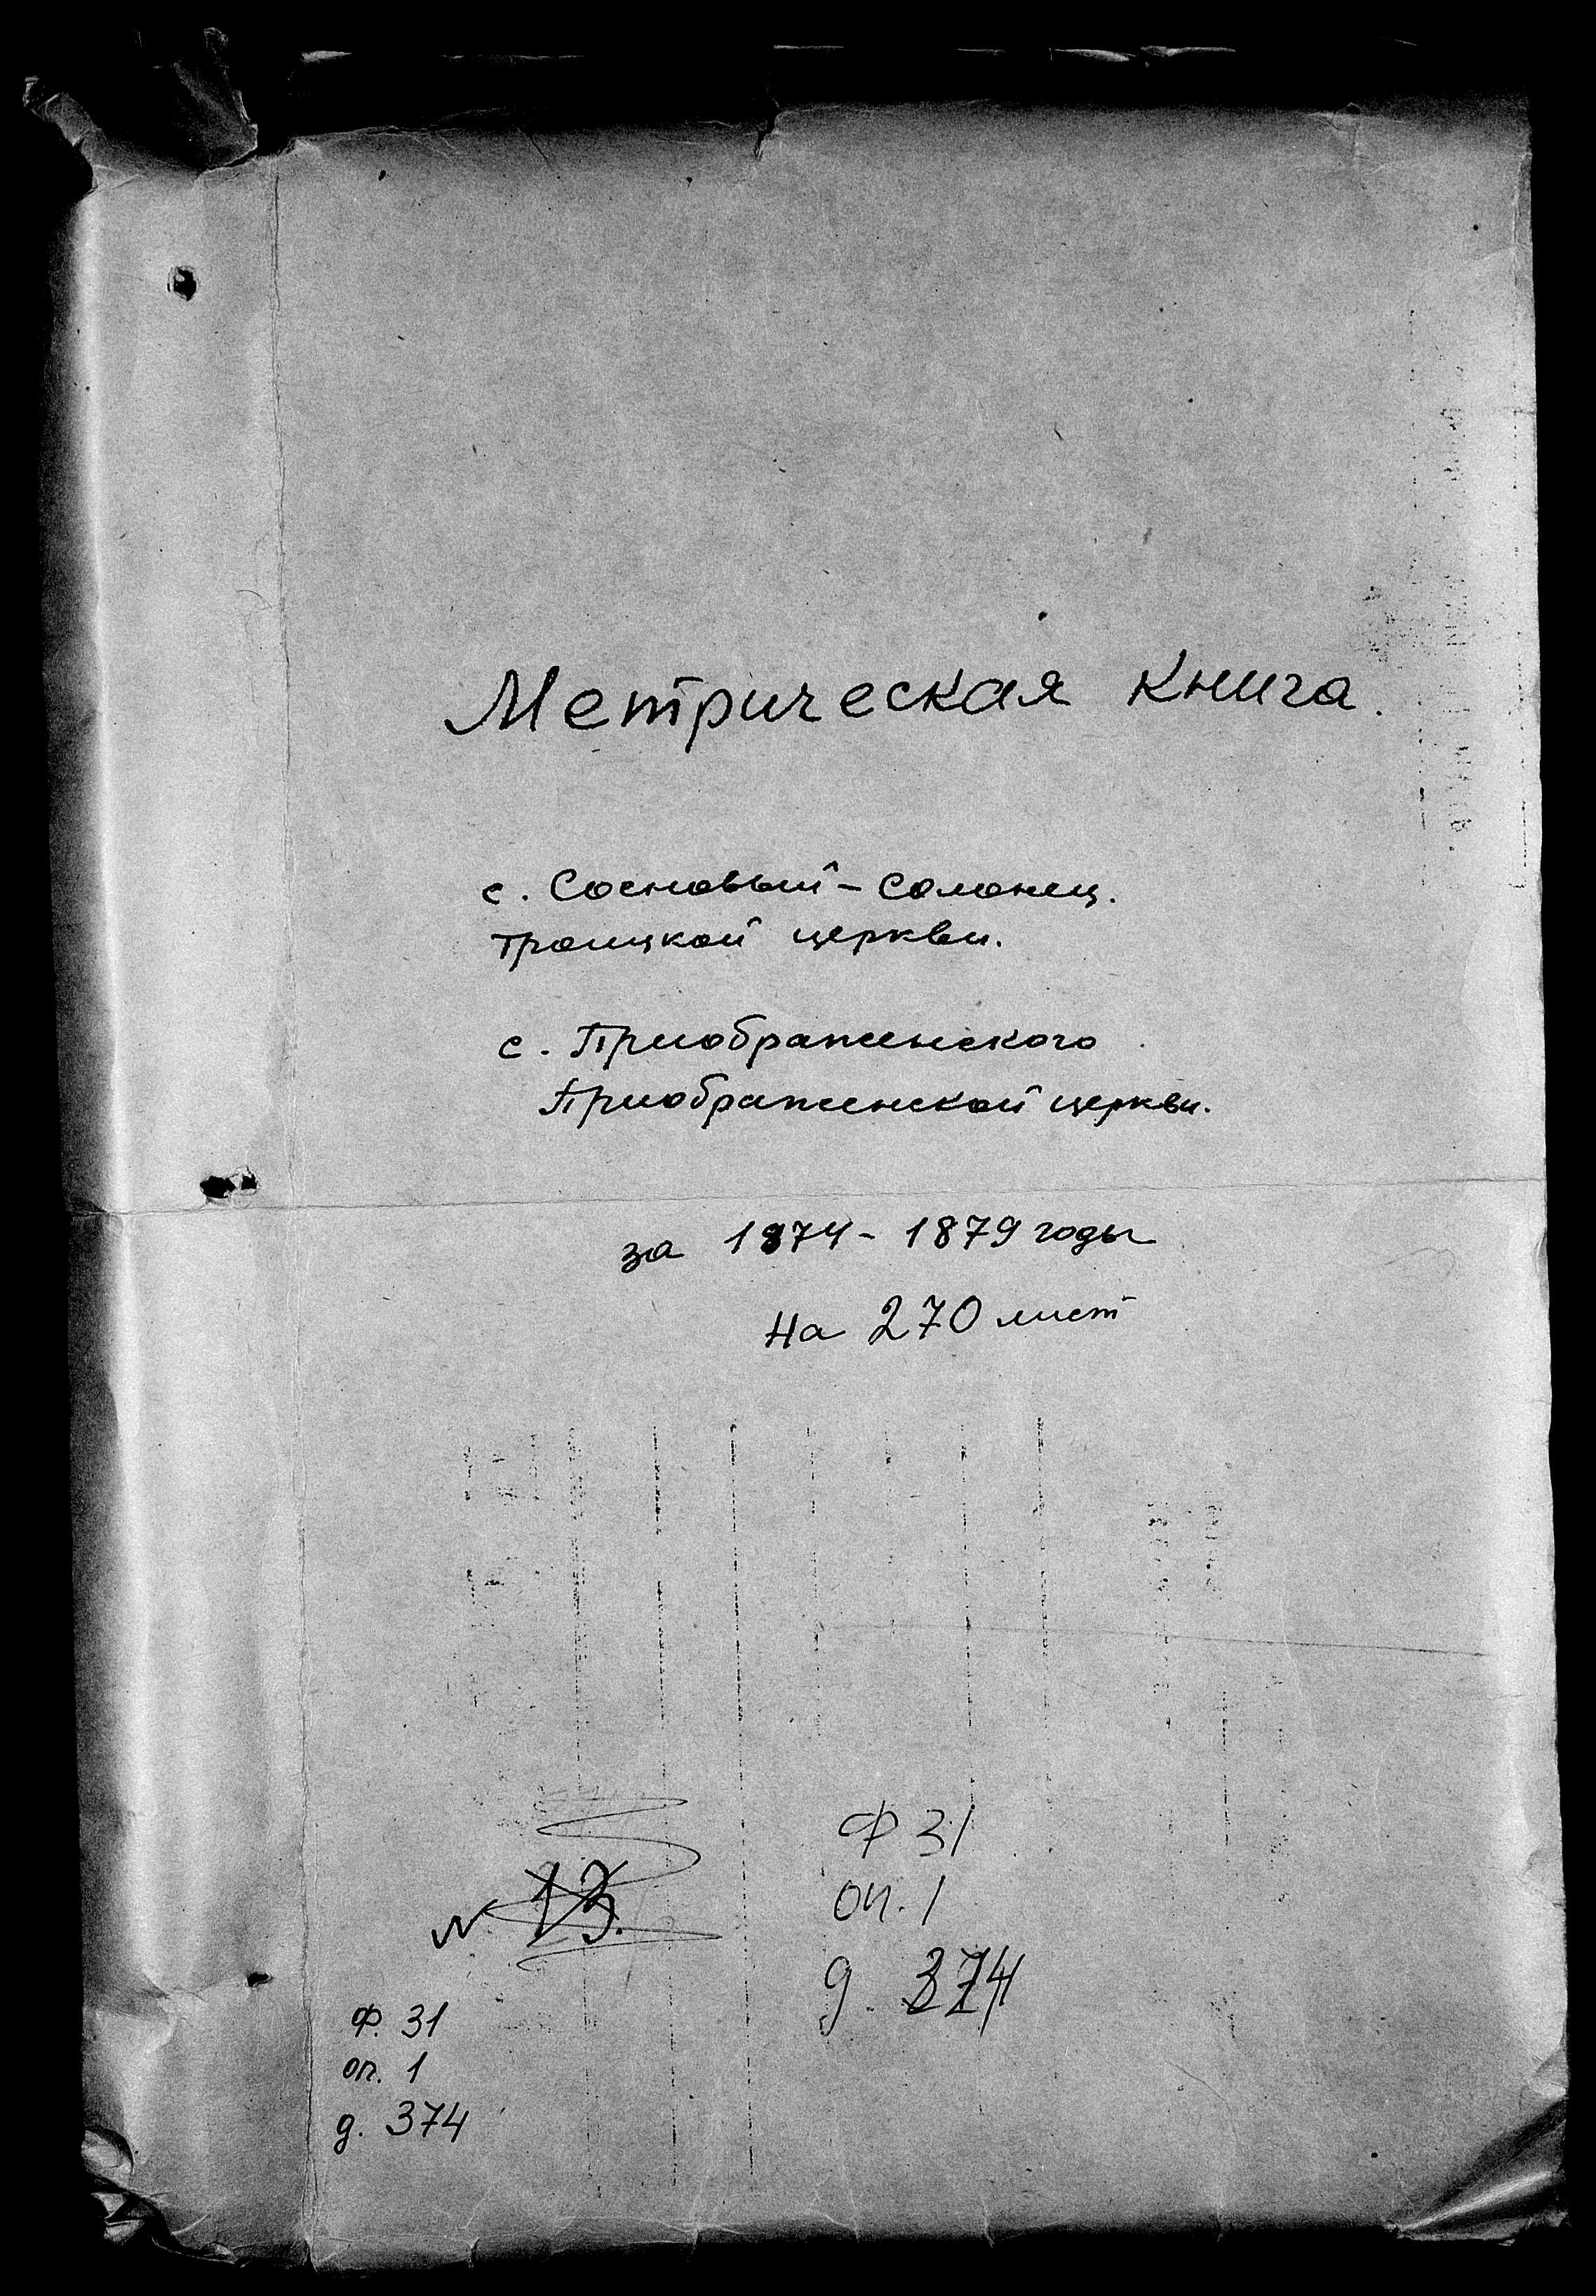 Метрическая книга.
с. Сосновый-Солонец.
Троицкой церкви.
с. Приображенского
Приображенской церкви.
за 1874- 1879 годы
На 270 лист
Ф 31
оп. 1
д. 374
N 13.
Ф. 31
оп. 1
д. 374